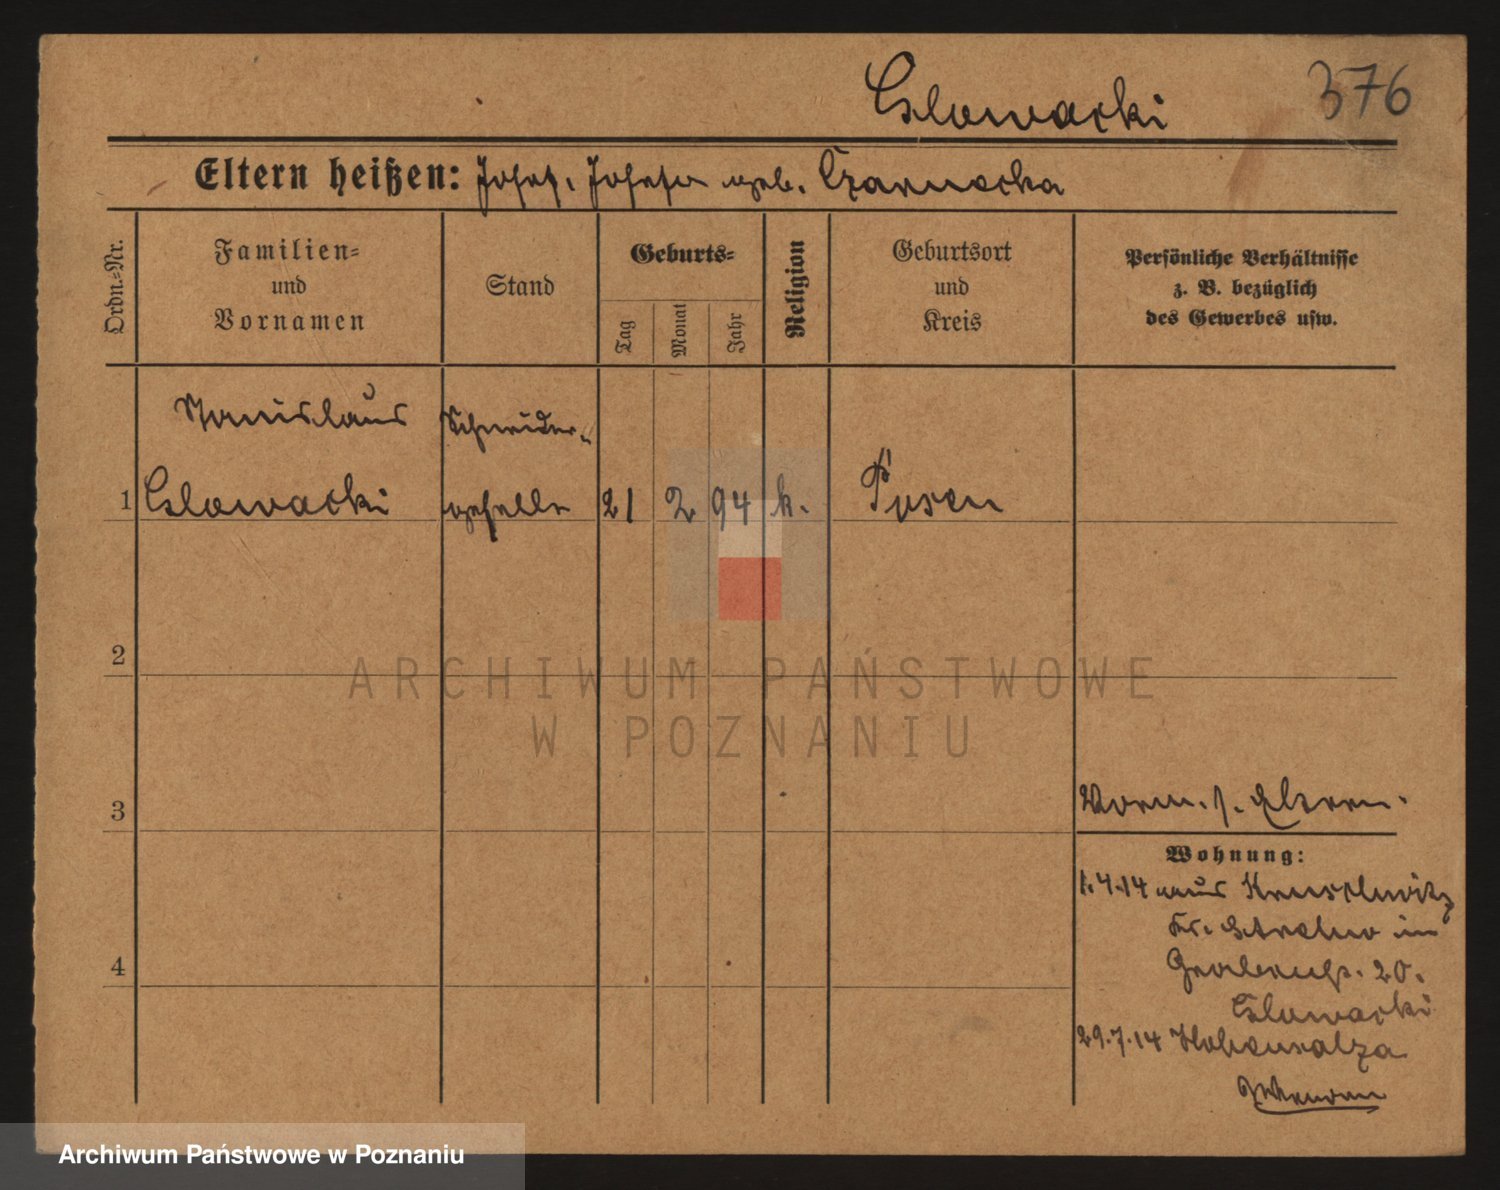 376
Glowacki
Eltern heißen: Josef, Josefa geb. Czarnecka
Ordn.=Nr.
Familien=
und
Vornamen
Stand
Geburts=
Tag
Monat
Jahr
Religion
Geburtsort
und
Kreis
Persönliche Verhältnisse
z. B. bezüglich
des Gewerbes usw.
Stanislaus
Schneider=
1 Glowacki
geselle
21 2 94 k. Posen
2
3
4
Vorm. s. Eltern.
Wohnung:
1.4.14 aus Kruschwitz
Kr. Strelno in
20.
Glowacki
29.7.14 Hohensalza
ARCHIWUM PAŃSTWOWE
W POZNANIU
Archiwum Państwowe w Poznaniu